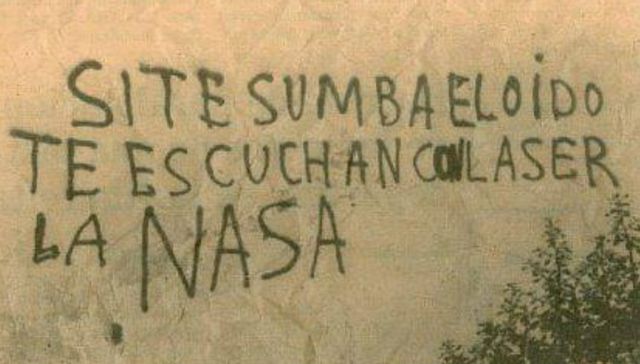 SI TE SUMBA EL OÍDO
TE ESCUCHAN CON LASER
LA NASA